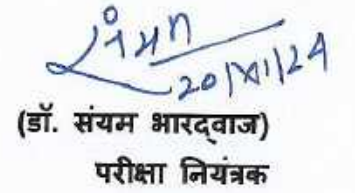 संयम
20/XI/24
(डॉ. संयम भारद्वाज)
परीक्षा नियंत्रक